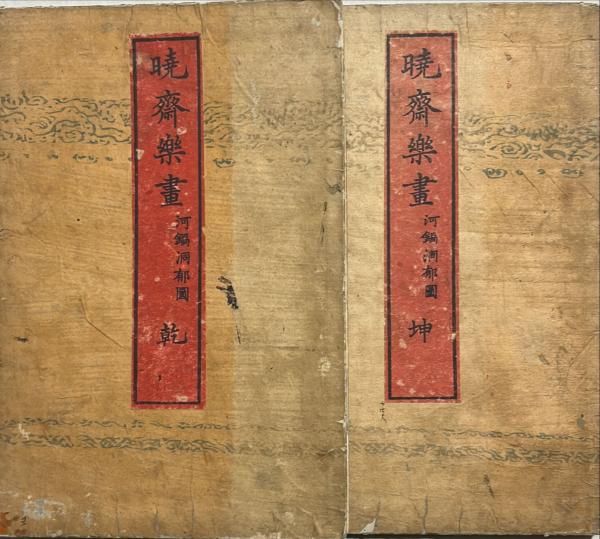 暁齋樂畫
河鍋洞郁圖
乾
暁齋樂畫
河鍋洞郁圖
坤